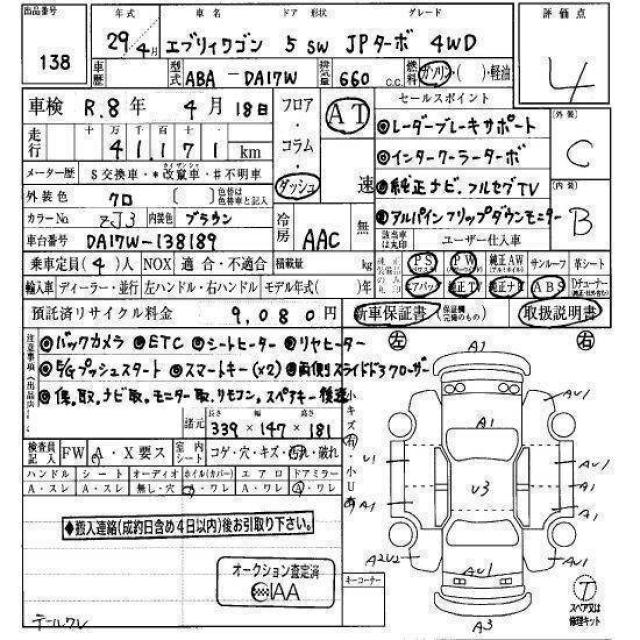 出品番号
138
年式 車名 ドア 形状 グレード
29年 4月 エブリィワゴン 5 SW JPターボ 4WD
評価点
4
車歴 型式 ABA-DA17W 排気量 660 c.c. 燃料 ガソリン・( )・軽油
車検 R.8年 4月 18日
フロア・コラム・ダッシュ
AT
速
セールスポイント
◎レーダーブレーキサポート
◎インタークーラーターボ
◎純正ナビ.フルセグTV
◎アルパインフリップダウンモニター
外装
C
内装
B
走行 十万千百十
41,171 km
メーター歴 S交換車・*改竄車・#不明車
外装色 クロ 〔 〕 色替は色替車と記入
カラーNo ZJ3 内装色 ブラウン
冷房 AAC 無
該当車は丸印 ユーザー仕入車
車台番号 DA17W-138189
乗車定員(4)人 NOX 適合・不適合 積載量 kg
PS PW 純正AW サンルーフ 革シート
輸入車 ディーラー・並行 左ハンドル・右ハンドル モデル年式( )年
エアバッグ 純正TV 純正ナビ ABS Dチューナー
預託済リサイクル料金 9,080円
新車保証書 (保証欄完備のもの) 取扱説明書
注意事項(出品店)
◎バックカメラ ◎ETC ◎シートヒーター ◎リヤヒーター
◎E/Gプッシュスタート ◎スマートキー(×2) ◎両側スライドドアクローザー
◎保.取.ナビ取.モニター取.リモコン.スペアキー後送
諸元 長さ 幅 高さ
339 × 147 × 181
検査員記入 FW A・X要ス 室内シート コゲ・穴・キズ・汚れ・破れ
ハンドル シート オーディオ ホイル(カバー) エアロ ドアミラー
A・スレ A・スレ 無し・穴 A・ワレ A・ワレ A・ワレ
小キズ有・小U有
◆搬入連絡(成約日含め4日以内)後お引取り下さい。
オークション査定済
AIAA
テールワレ
キーコーナー
左 右
A1
AU1
A1
U1
U3
AU1
A1
A1
A1
A2U2
AU1
AU1
A3
T
スペア又は修理キット